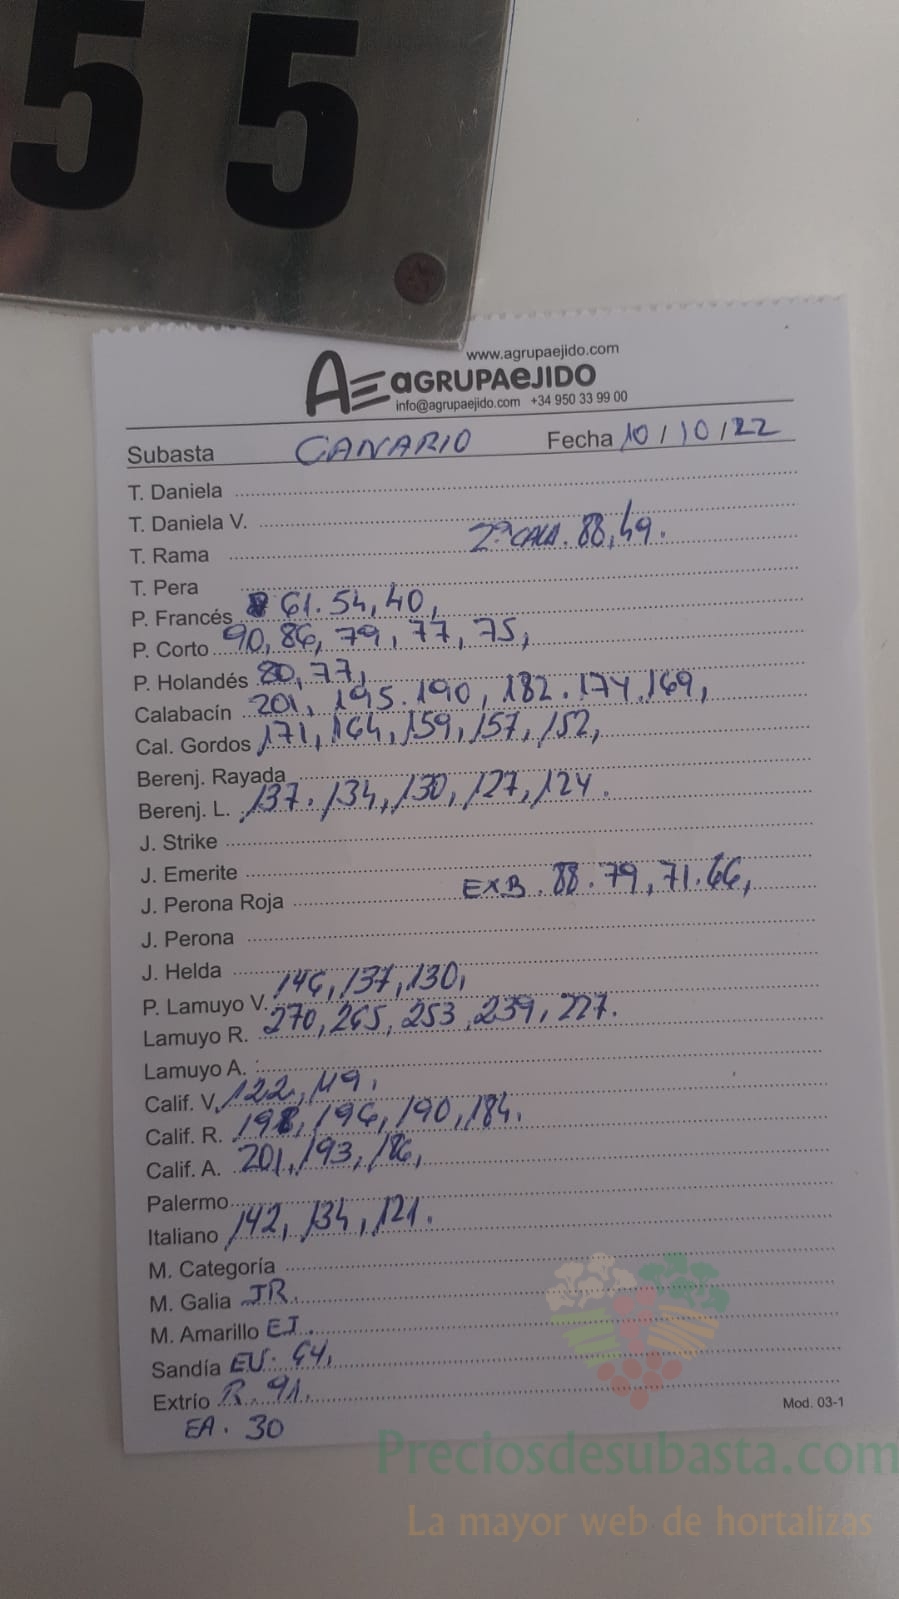 55
www.agrupaejido.com
AE aGRUPAeJIDO
info@agrupaejido.com +34 950 33 99 00
Subasta CANARIO Fecha 10/10/22
T. Daniela
T. Daniela V.
T. Rama 2ª CALA. 88, 49.
T. Pera
P. Francés 61. 54, 40,
P. Corto 90, 86, 79, 77, 75,
P. Holandés 80, 77,
Calabacín 201, 195. 190, 182. 174, 169,
Cal. Gordos 171, 164, 159, 157, 152,
Berenj. Rayada
Berenj. L. 137. 134, 130, 127, 124.
J. Strike
J. Emerite
J. Perona Roja EXB. 88. 79, 71. 66,
J. Perona
J. Helda
P. Lamuyo V. 146, 137, 130,
Lamuyo R. 270, 265, 253, 239, 227.
Lamuyo A.
Calif. V. 122, 119.
Calif. R. 198, 196, 190, 184.
Calif. A. 201, 193, 186,
Palermo
Italiano 142, 134, 121.
M. Categoría
M. Galia JR.
M. Amarillo EI.
Sandía EV. 64,
Extrio R. 91.
EA. 30
Mod. 03-1
Preciosdesubasta.com
La mayor web de hortalizas